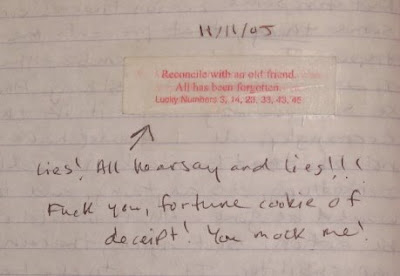 11/11/05
Reconcile with an old friend.
All has been forgotten.
Lucky Numbers 3, 14, 23, 33, 43, 45
Lies! All hearsay and lies!!!
Fuck you, fortune cookie of
deceipt! You mock me!